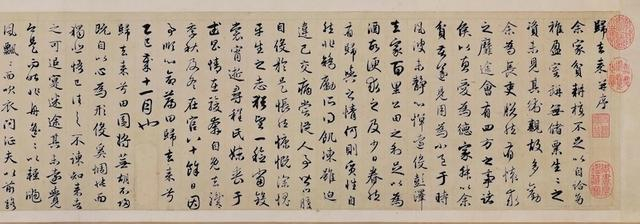 歸去來并序
余家貧耕植不足以自給幼
稚盈室缾無儲粟生生之
資未見其術親故多勸
余為長吏脫然有懷求
之靡途會有四方之事諸
侯以惠愛為德家叔以余
貧苦遂見用為小邑于時
風波未靜心憚遠役彭澤
去家百里公田之利足以為
酒故便求之及少日眷然
有歸與之情何則質性自
然非矯勵所得飢凍雖切
違己交病嘗從人事皆口腹
自役於是悵然慷慨深愧
平生之志猶望一稔當斂
裳宵逝尋程氏妹喪于
武昌情在駿奔自免去職
仲秋及冬在官八十餘日因
事順心命篇曰歸去來兮
乙巳歲十一月也
歸去來兮田園將蕪胡不歸
既自以心為形役奚惆悵而
獨悲悟已往之不諫知來者
之可追寔迷途其未遠覺
今是而昨非舟遙遙以輕颺
風飄飄而吹衣問征夫以前路